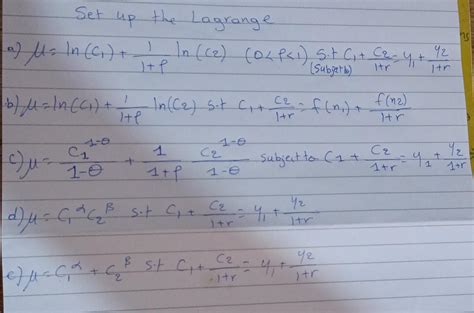 Set up the Lagrange
a) μ = ln(C₁) + 1/(1+ρ) ln(C2) (0<ρ<1) S.t C₁ + C2/(1+r) = y₁ + y2/(1+r)
(Subject to)
b) μ = ln(C₁) + 1/(1+ρ) ln(C2) s.t C₁ + C2/(1+r) = f(n₁) + f(n2)/(1+r)
c) μ = C₁^(1-θ)/(1-θ) + 1/(1+ρ) C2^(1-θ)/(1-θ) subject to C1 + C2/(1+r) = y₁ + y2/(1+r)
d) μ = C₁^α C2^β s.t C₁ + C2/(1+r) = y₁ + y2/(1+r)
e) μ = C₁^α + C2^β s.t C₁ + C2/(1+r) = y₁ + y2/(1+r)